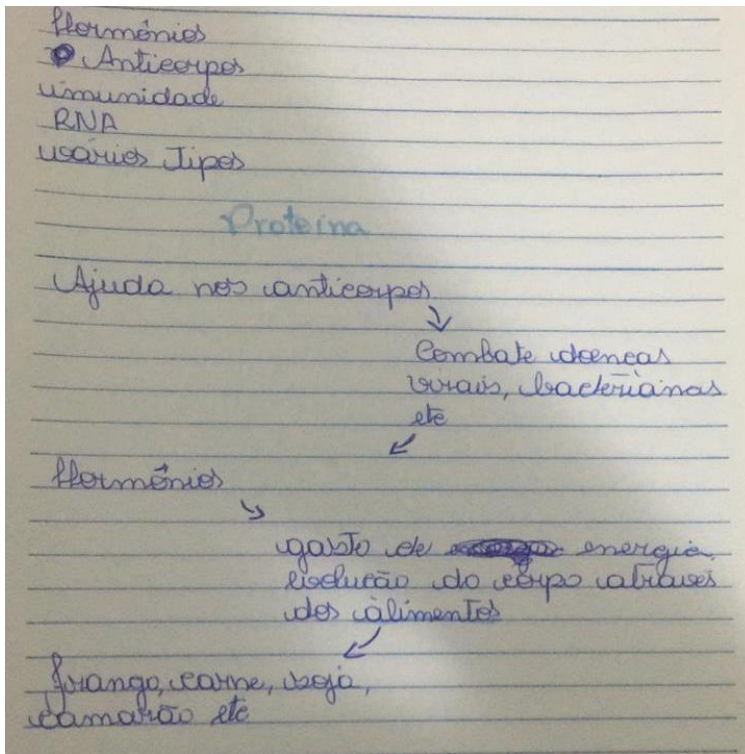 Hormônios
Anticorpos
imunidade
RNA
vários Tipos
Proteína
Ajuda nos anticorpos
Combate doenças
virais, bacterianas
etc
Hormônios
gasto de energia
evolução do corpo através
dos alimentos
frango, carne, soja,
camarão etc